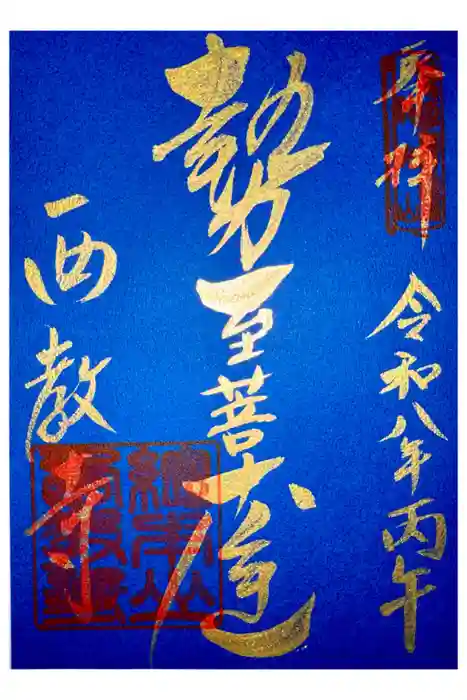 奉拝
令和八年丙午
勢至菩薩
西教寺